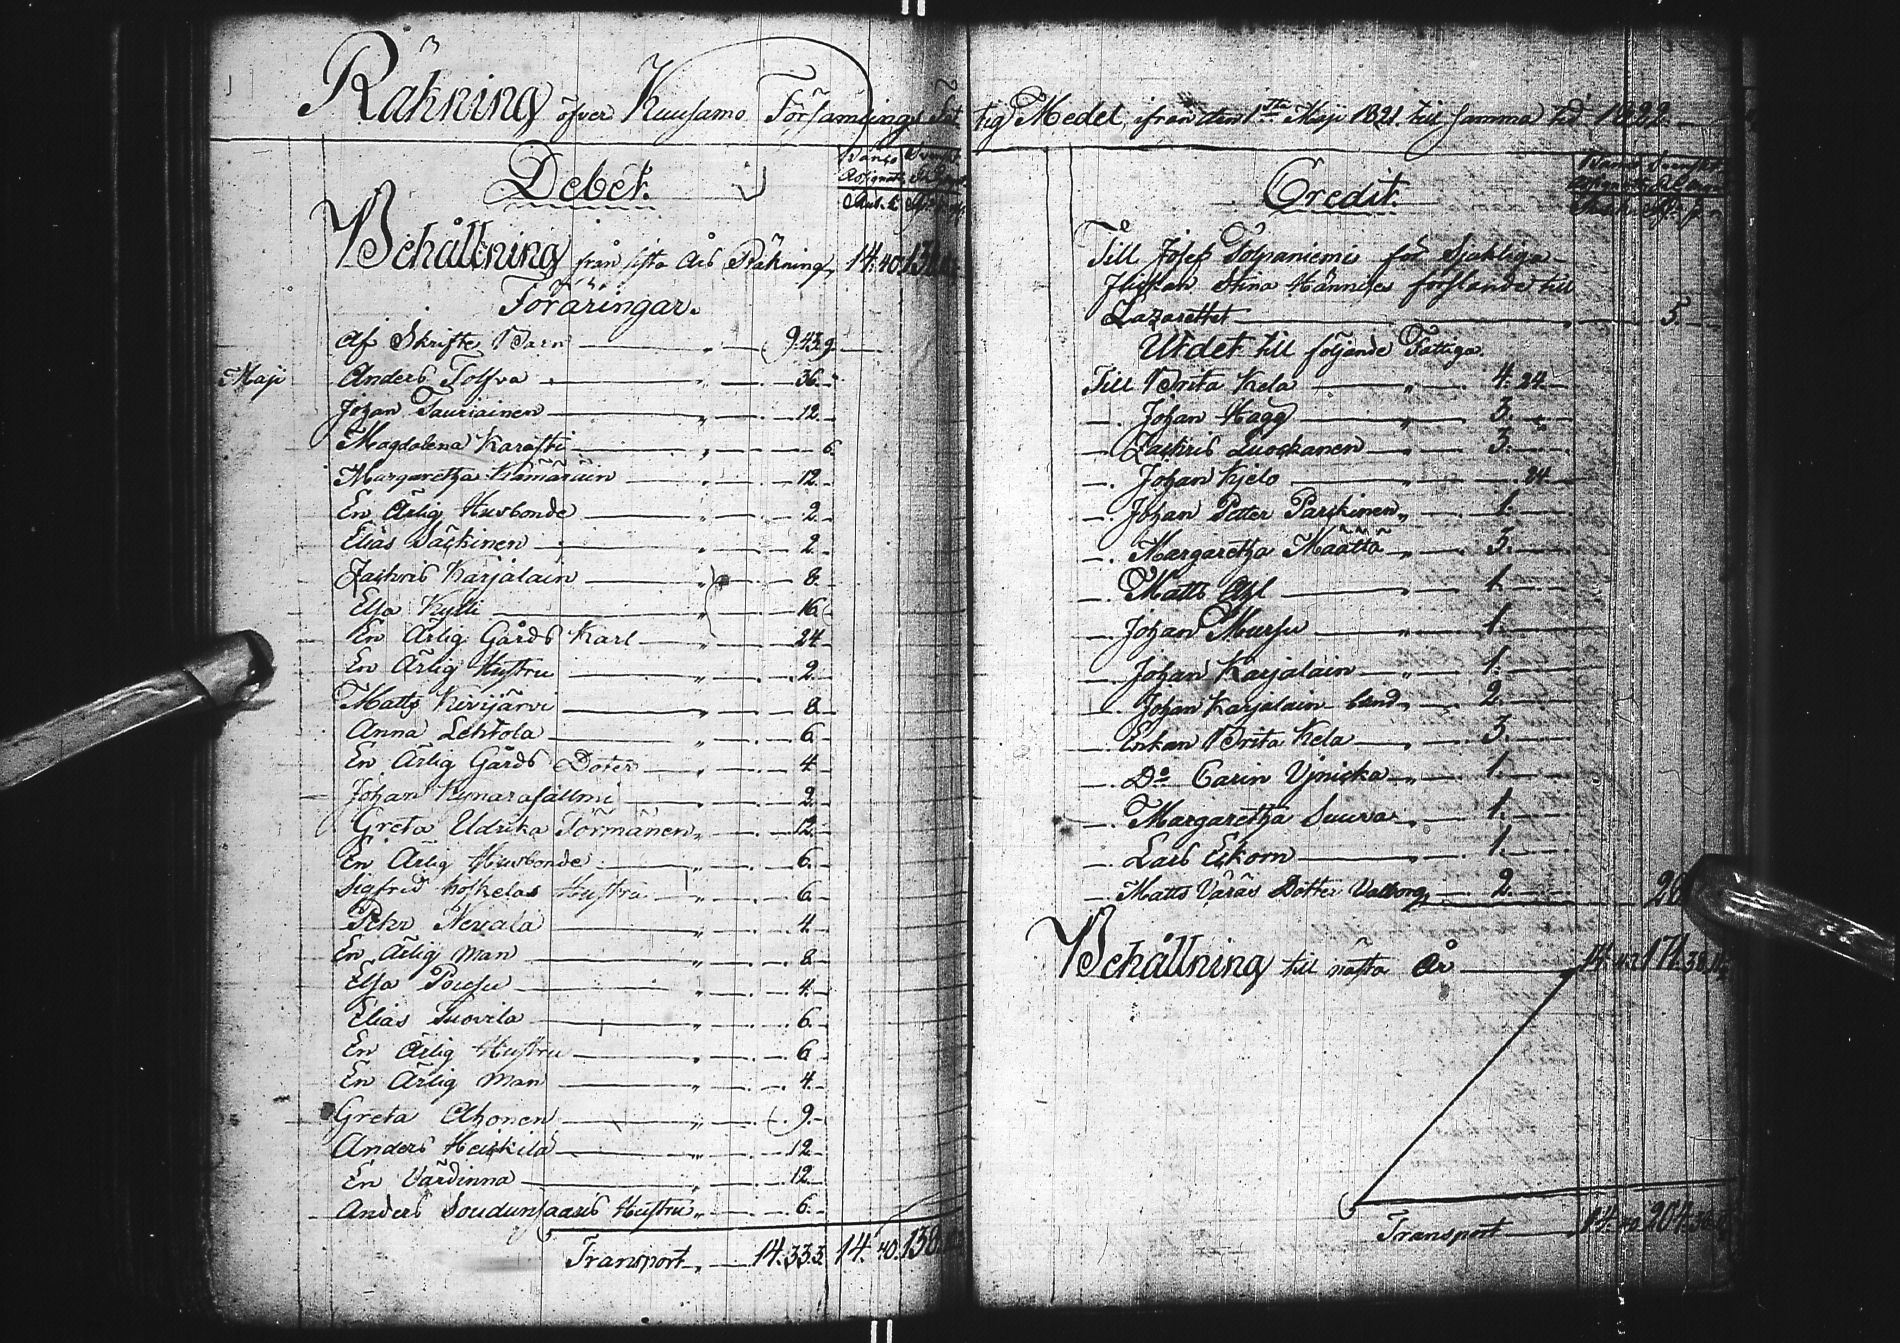 Räkning öfver Kuusamo Församlings Fattig Medel, ifrån den 1sta Maji 1821. till samma tid 1822.
Debet.
Banco
Assignat.
Behållning från sista Års Räkning, 14. 40. 138
Föräringar.
Af Skrifte Barn 9. 43. 9.
Maji Anders Tolfva 36.
Johan Tauriainen 12.
Magdalena Karasti 6.
Margaretha Kämäräin 12.
En Ärlig Husbonde 2.
Elias Säckinen 2.
Zachris Karjalain 8.
Elsa Kylli 16.
En Ärlig Gårds Karl 24.
En Ärlig Hustru 2.
Matts Kivijärvi 8.
Anna Lehtola 6.
En Ärlig Gårds Doter 4.
Johan 2.
Greta Udrika Törmänen 12.
En Ärlig Husbonde 6.
Sigfrid Koskelas Hustru 6.
Pehr Nevala 4.
En Ärlig Man 8.
Elsa Pousu 4.
Elias Tuovila 6.
En Ärlig Hustru 6.
En Ärlig Man 4.
Greta Ahonen 9.
Anders Heickilä 12.
En Värdinna 12.
Anders Soudunsaaris Hustru 6.
Transport 14. 33. 3. 14. 40. 138
Credit.
Banco
Till Josef Tolpaniemi för Sjukliga
Flickan Stina Hännises forslande till
Lazarettet 5.
Utdelt till följande Fattiga
Till Brita Kela 4. 24.
Johan Hagg 3.
Zachris Luockanen 3.
Johan Kjelo 24.
Johan Petter Parckinen 1.
Margaretha Määttä 3.
Matts Ahl 1.
Johan Mursu 1.
Johan Karjalain 1.
Johan Karjalain blind 2.
Enkan Brita Kela 3.
Do Carin Vjnicka 1.
Margaretha Suuva 1.
Lars Eskorn 1.
Matts Väräs Dotter Valborg 2.
Behållning till nästa År 14. 40. 171. 38.
Transport 14. 40. 204. 38.